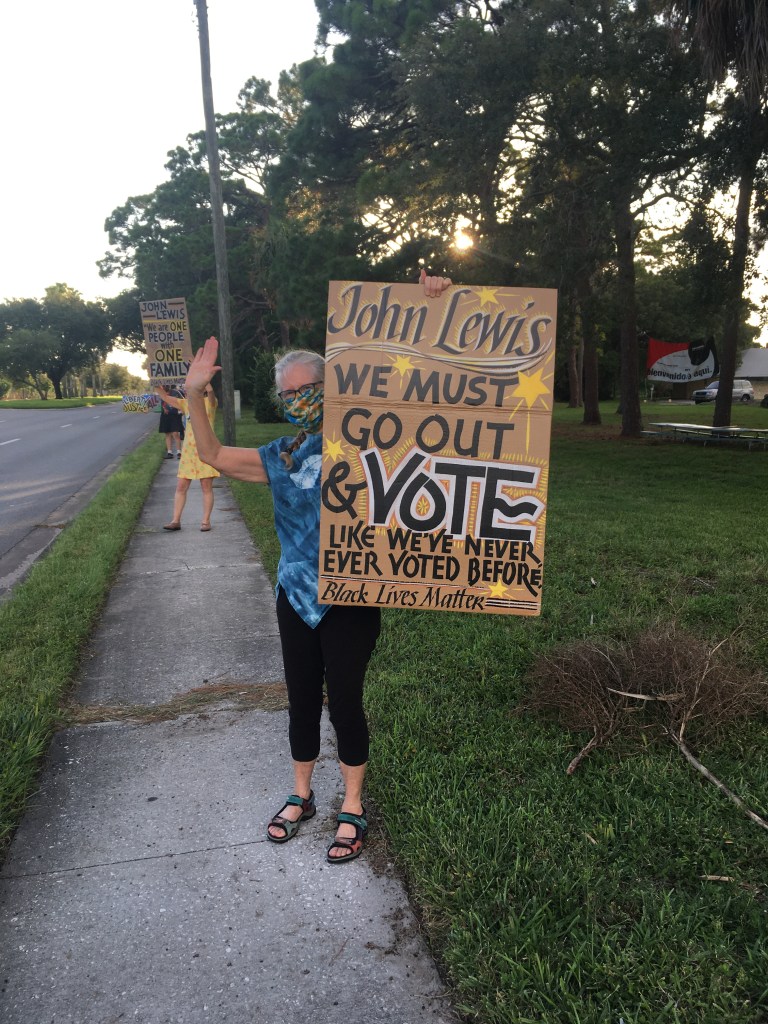 John Lewis
WE MUST
GO OUT
& VOTE
LIKE WE'VE NEVER
EVER VOTED BEFORE
Black Lives Matter
JOHN
LEWIS
"We are ONE
PEOPLE
with
ONE
FAMILY
Bienvenido
aqui.